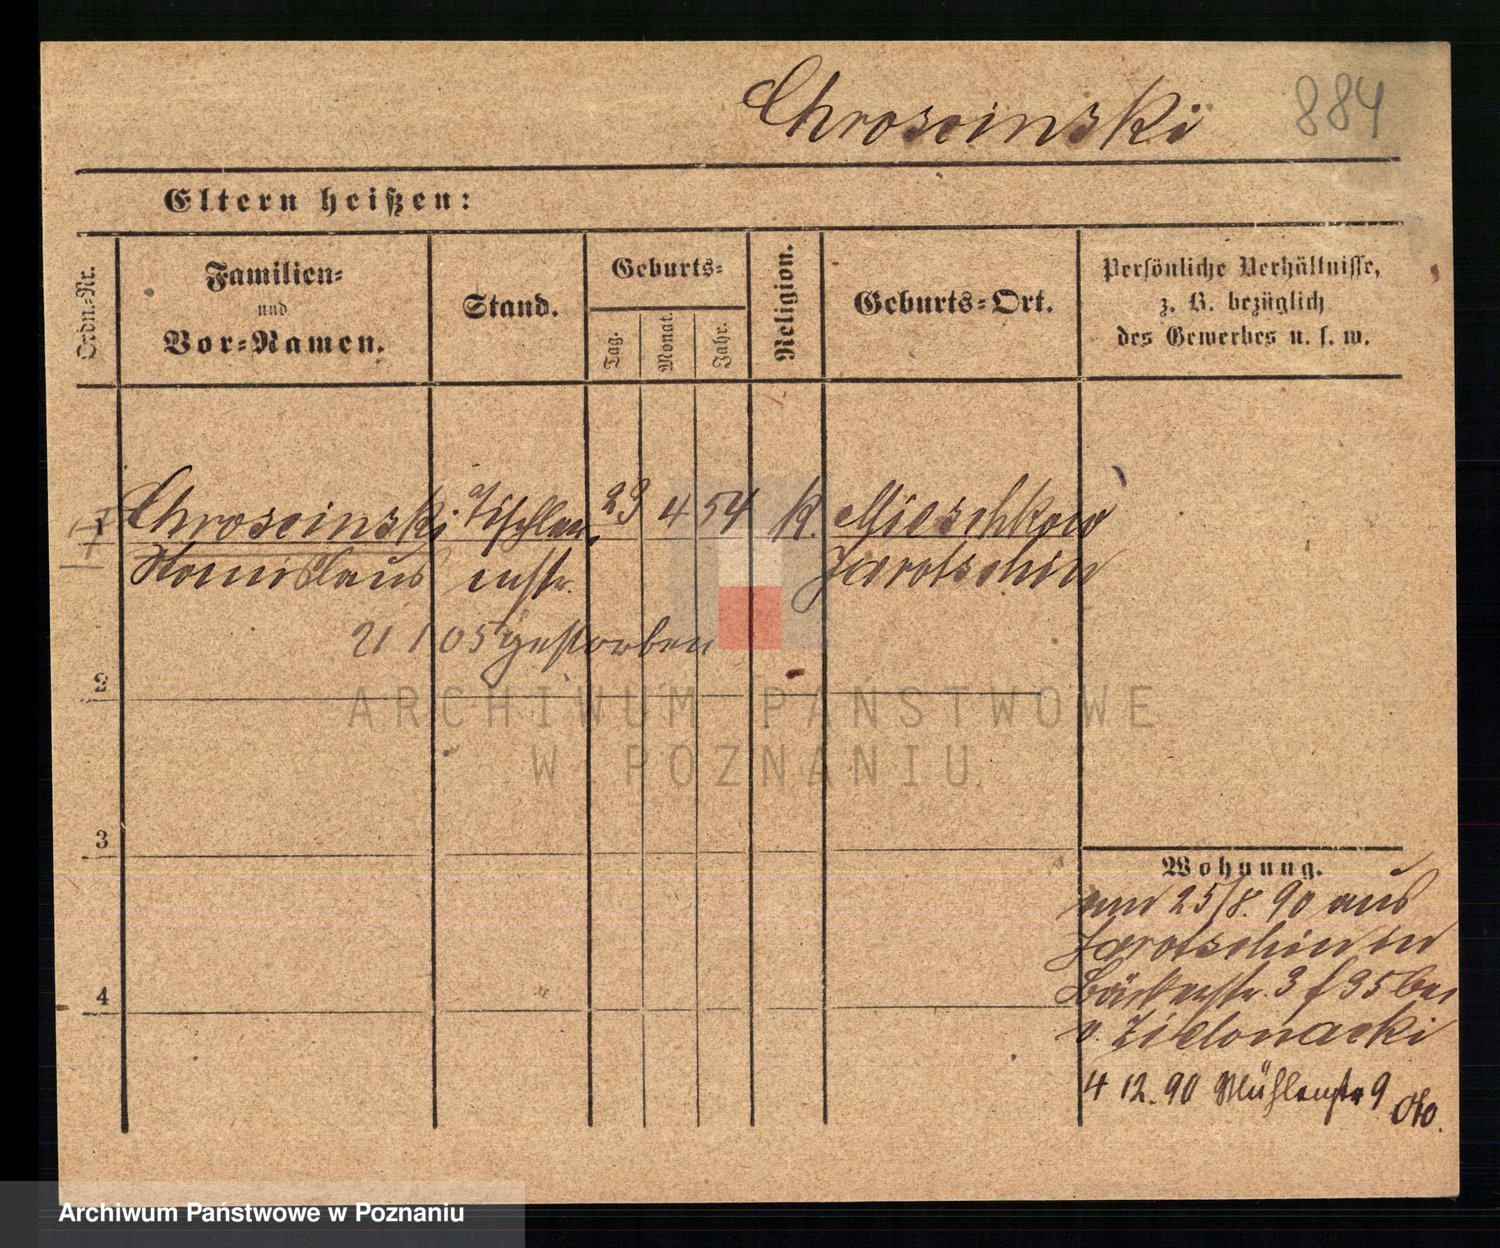 Chroscinski 884
Eltern heißen:
Ordn.-Nr.
Familien-
und
Vor-Namen.
Stand.
Geburts-
Tag.
Monat.
Jahr.
Religion.
Geburts-Ort.
Persönliche Verhältnisse,
z. B. bezüglich
des Gewerbes u. s. w.
1 Chroscinski Tischler 23 4 54 k. Mieschkow
Stanislaus Jarotschin
21 1 05 gestorben
2
ARCHIWUM PAŃSTWOWE
W POZNANIU
3
Wohnung.
am 25/8. 90 aus
Jarotschin in
Bäckerstr. 3 bei
v. Zielonacki
4
4 12. 90 Mühlenstr 9
Archiwum Państwowe w Poznaniu